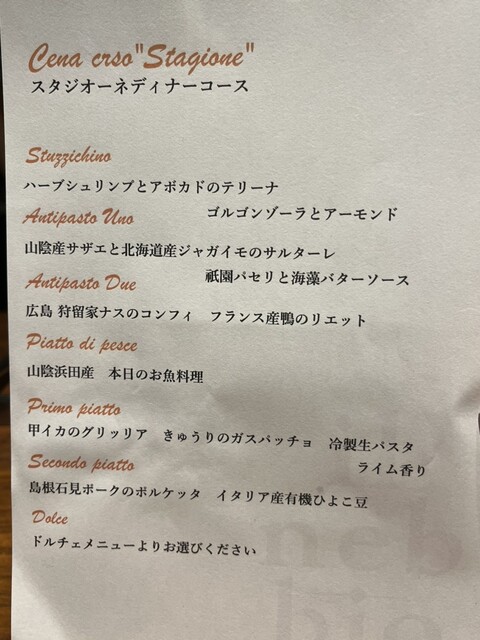 Cena crso"Stagione"
スタジオーネディナーコース
Stuzzichino
ハーブシュリンプとアボカドのテリーナ
ゴルゴンゾーラとアーモンド
Antipasto Uno
山陰産サザエと北海道産ジャガイモのサルターレ
祇園パセリと海藻バターソース
Antipasto Due
広島 狩留家ナスのコンフィ　フランス産鴨のリエット
Piatto di pesce
山陰浜田産　本日のお魚料理
Primo piatto
甲イカのグリッリア　きゅうりのガスパッチョ　冷製生パスタ
ライム香り
Secondo piatto
島根石見ポークのポルケッタ　イタリア産有機ひよこ豆
Dolce
ドルチェメニューよりお選びください
neb
bio